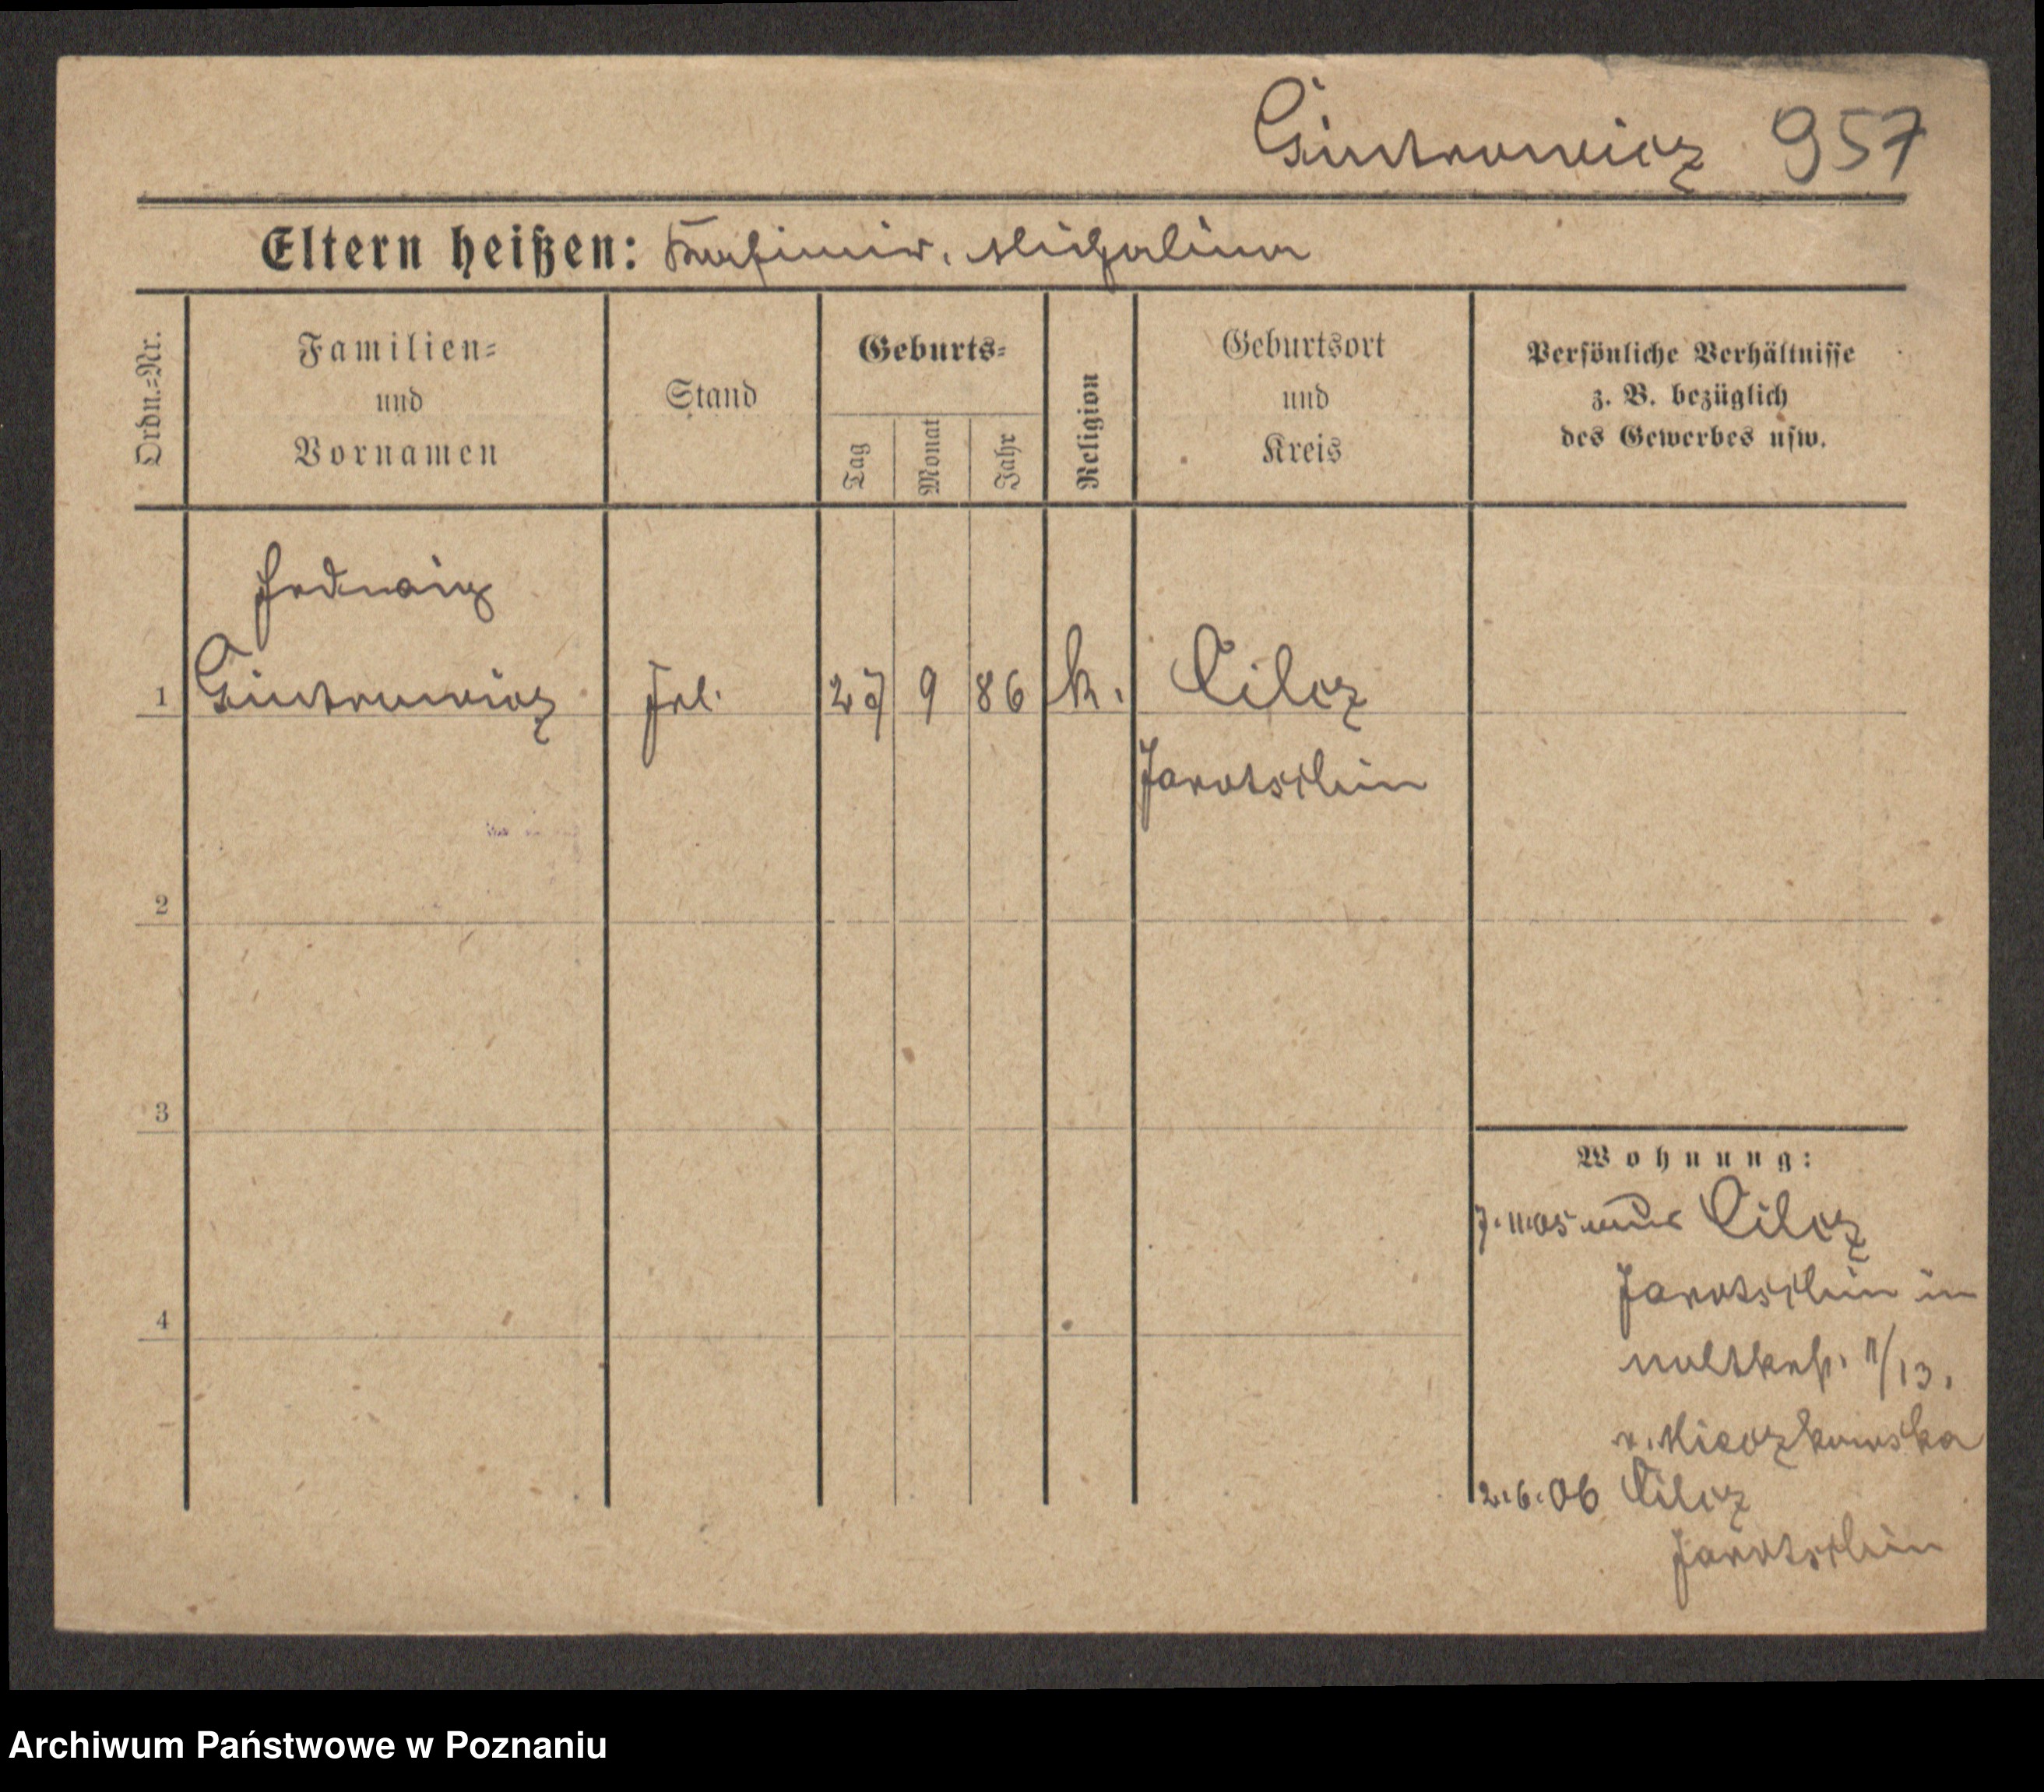 Gintrowicz 957
Eltern heißen: Kasimir, Michalina
Ordn.=Nr.
Familien=
und
Vornamen
Stand
Geburts=
Tag
Monat
Jahr
Religion
Geburtsort
und
Kreis
Persönliche Verhältnisse
z. B. bezüglich
des Gewerbes usw.
Hedwig
1 Gintrowicz Frl. 27 9 86 k. Cilcz
Jarotschin
2
3
4
Wohnung:
7.11.05 aus Cilcz
Jarotschin in
v. Mieczkowska
2.6.06 Cilcz
Jarotschin
Archiwum Państwowe w Poznaniu